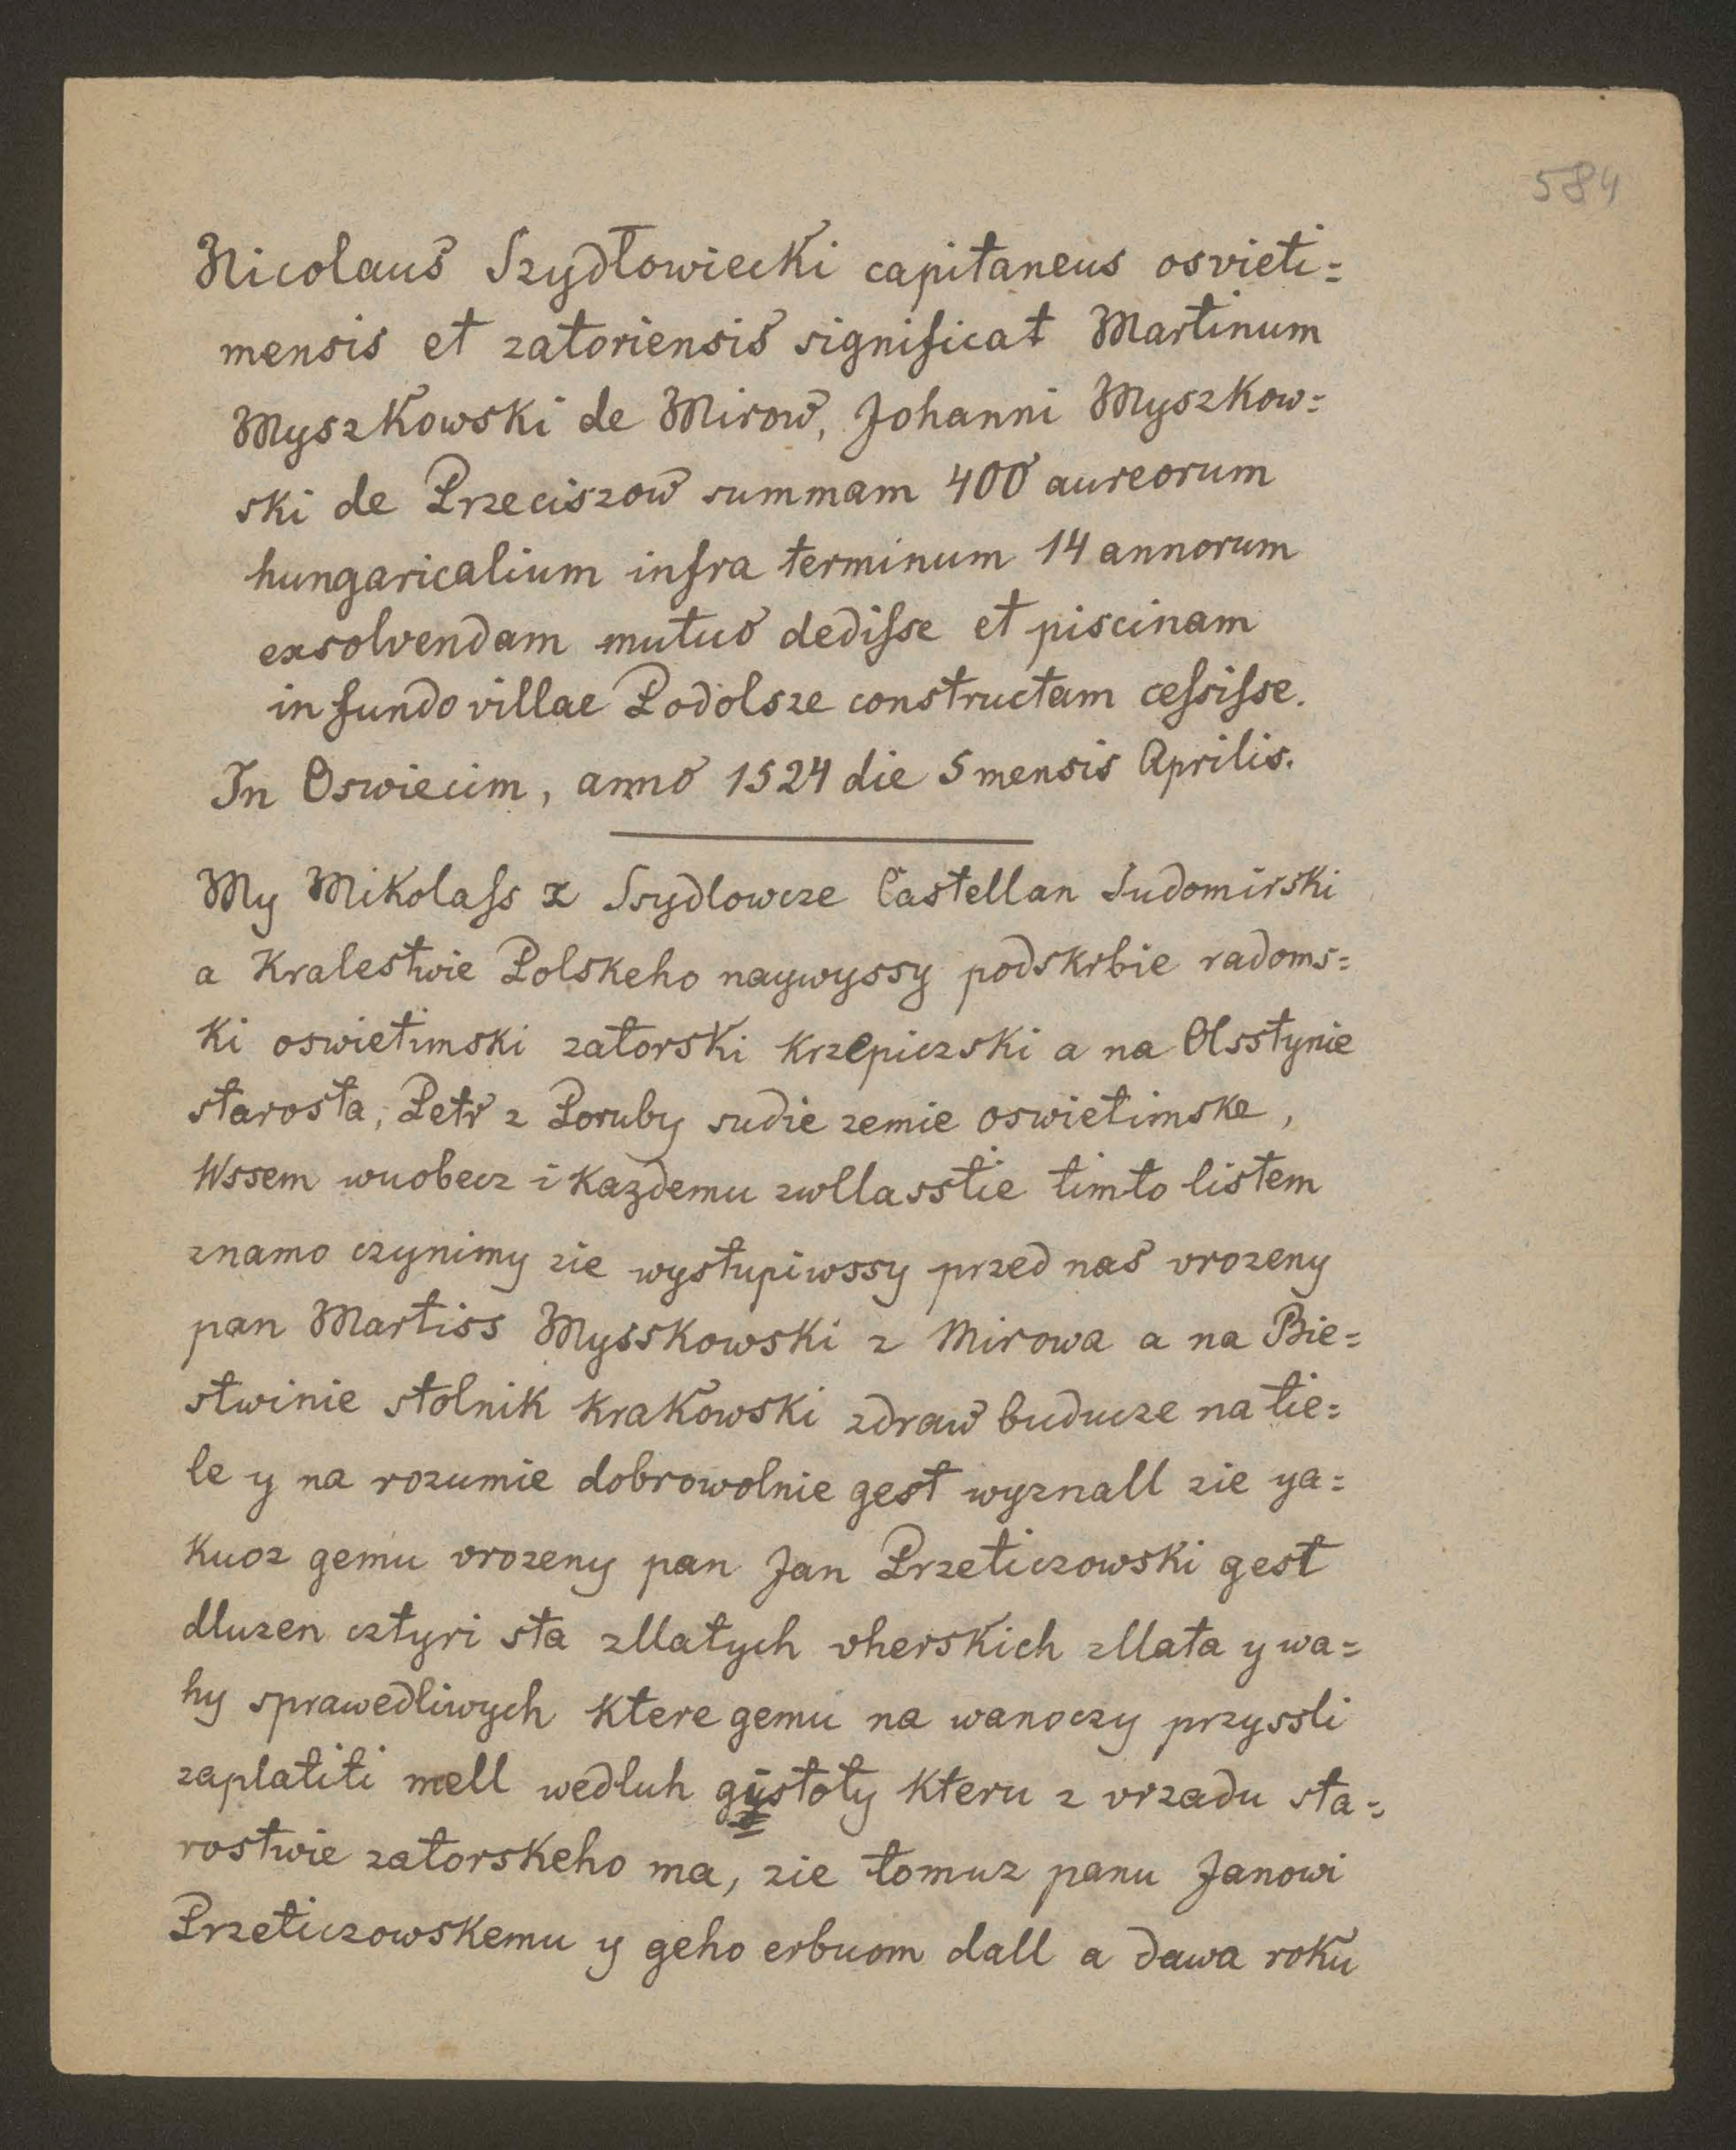 584
Nicolaus Szydłowiecki capitaneus osvieti=
mensis et zatoriensis significat Martinum
Myszkowski de Mirow, Johanni Myszkow=
ski de Przeciszow summam 400 aureorum
hungaricalium infra terminum 14 annorum
exsolvendam mutuo dediſse et piscinam
in fundo villae Podolsze constructam ceſsiſse.
In Oswiecim, anno 1524 die 5 mensis Aprilis.
My Mikolaſs z Ssydlowcze Castellan Sudomirski
a Kralestwie Polskeho naywyssy podskrbie radoms=
ki oswietimski zatorski krzepiczski a na Olsstynie
starosta, Petr z Poruby sudie zemie oswietimske,
Wssem wuobecz i kazdemu zwllasstie timto listem
znamo czynimy zie wystupiwssy przed nas vrozeny
pan Martiss Mysskowski z Mirowa a na Bie=
stwinie stolnik krakowski zdraw buducze na tie=
le y na rozumie dobrowolnie gest wyznall zie ya=
kuoz gemu vrozeny pan Jan Przeticzowski gest
dluzen cztyri sta zllatych vherskich zllata y wa=
hy sprawedliwych ktere gemu na wanoczy przyssli
zaplatiti mell wedluh gystoty kteru z vrzadu sta=
rostwie zatorskeho ma, zie tomuz panu Janowi
Przeticzowskemu y geho erbuom dall a dawa roku